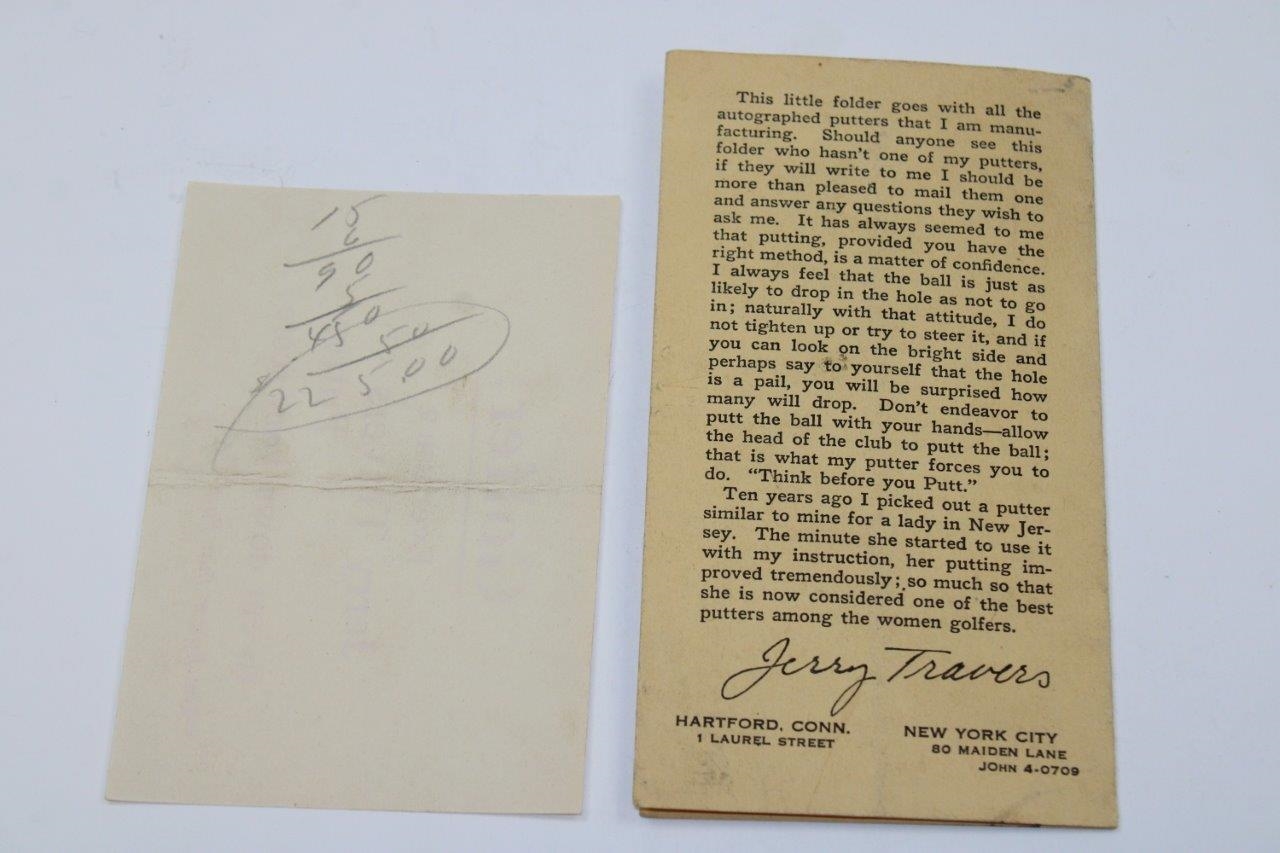 15
6
90
5
450
50
225.00
This little folder goes with all the
autographed putters that I am manu-
facturing. Should anyone see this
folder who hasn't one of my putters,
if they will write to me I should be
more than pleased to mail them one
and answer any questions they wish to
ask me. It has always seemed to me
that putting, provided you have the
right method, is a matter of confidence.
I always feel that the ball is just as
likely to drop in the hole as not to go
in; naturally with that attitude, I do
not tighten up or try to steer it, and if
you can look on the bright side and
perhaps say to yourself that the hole
is a pail, you will be surprised how
many will drop. Don't endeavor to
putt the ball with your hands—allow
the head of the club to putt the ball;
that is what my putter forces you to
do. "Think before you Putt."
Ten years ago I picked out a putter
similar to mine for a lady in New Jer-
sey. The minute she started to use it
with my instruction, her putting im-
proved tremendously; so much so that
she is now considered one of the best
putters among the women golfers.
Jerry Travers
HARTFORD, CONN.
1 LAUREL STREET
NEW YORK CITY
80 MAIDEN LANE
JOHN 4-0709